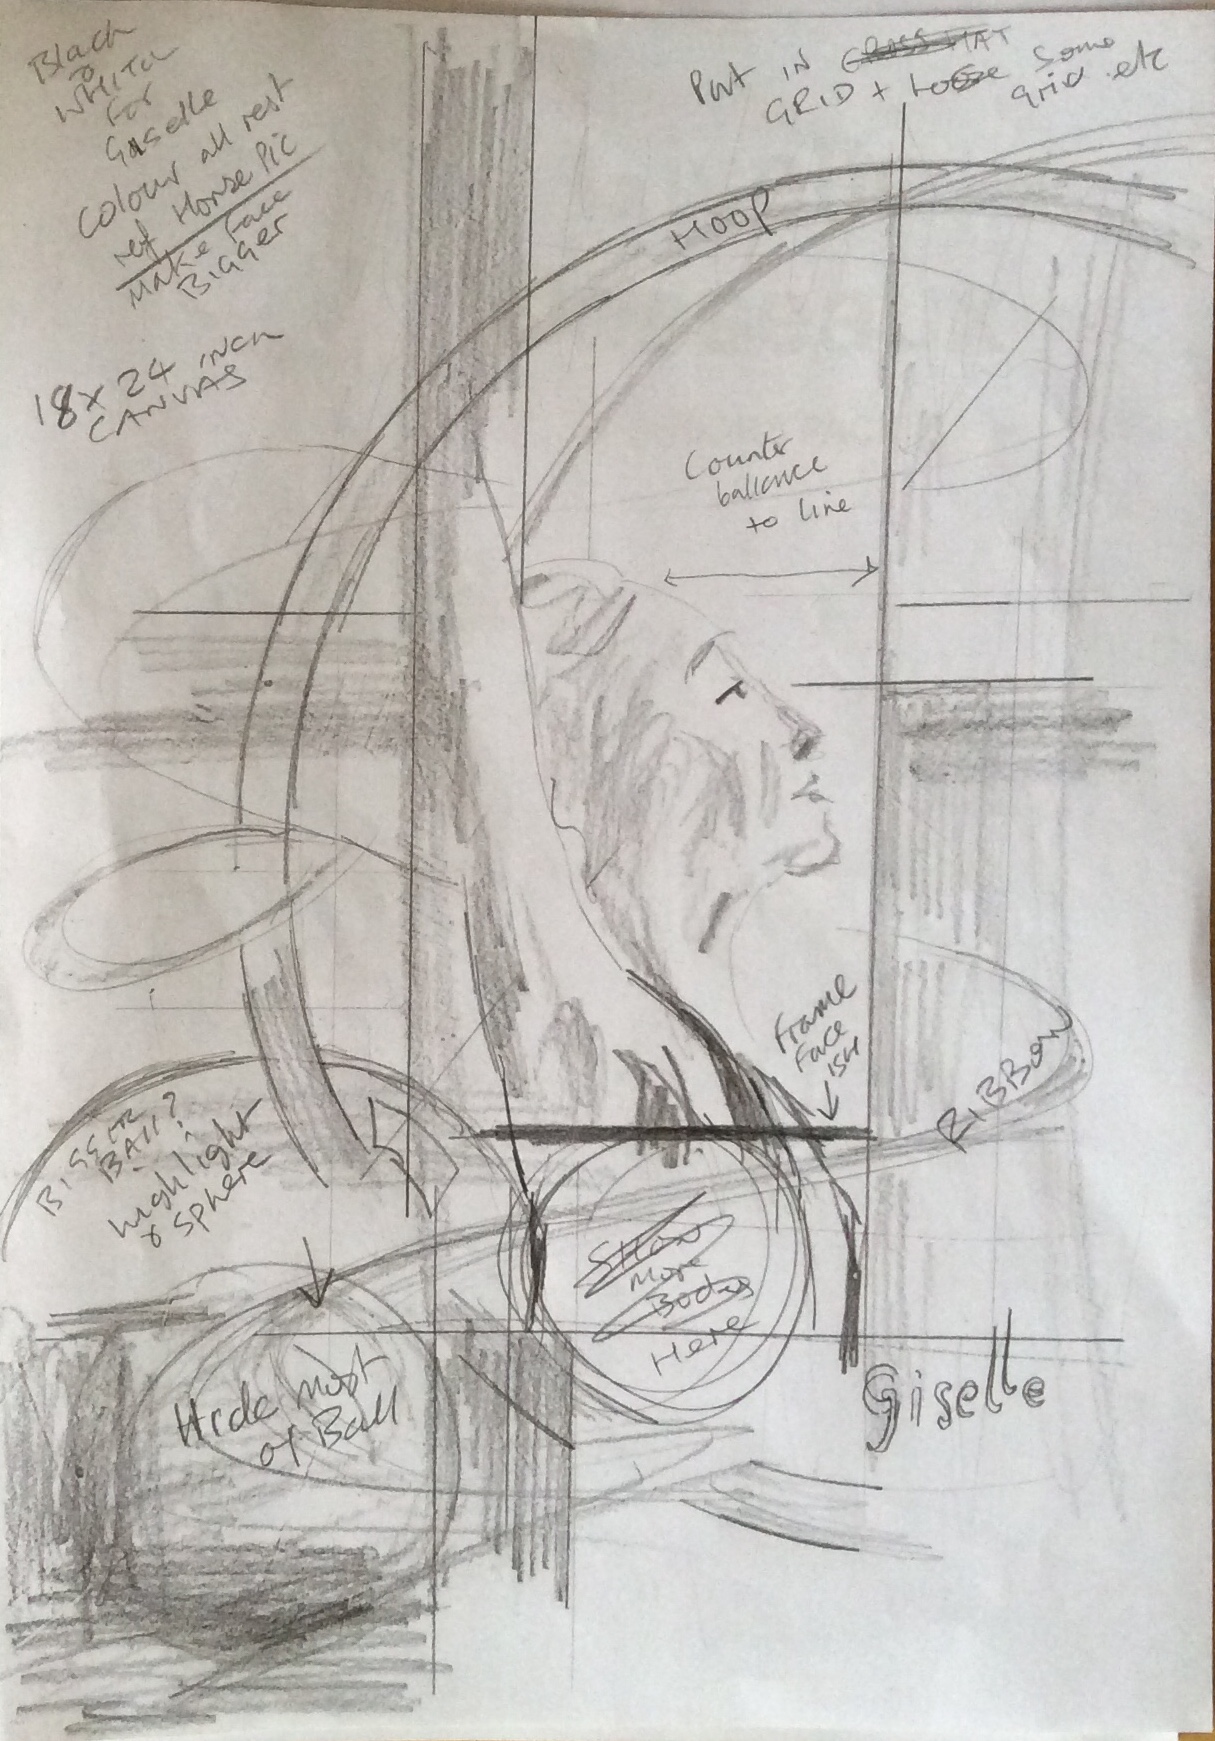 Black
&
WHITE
For
Giselle
Colour all rest
ref Horse Pic
Make Face
Bigger
18x 24 inch
CANVAS
Put IN GRASS MAT
GRID + loose some
grid etc
HOOP
Counter
ballance
to line
Frame
Face
ish
RIBBON
BIGGER
BALL?
highlight
& sphere
Hide most
of Ball
Show
More
Body
Here
Giselle